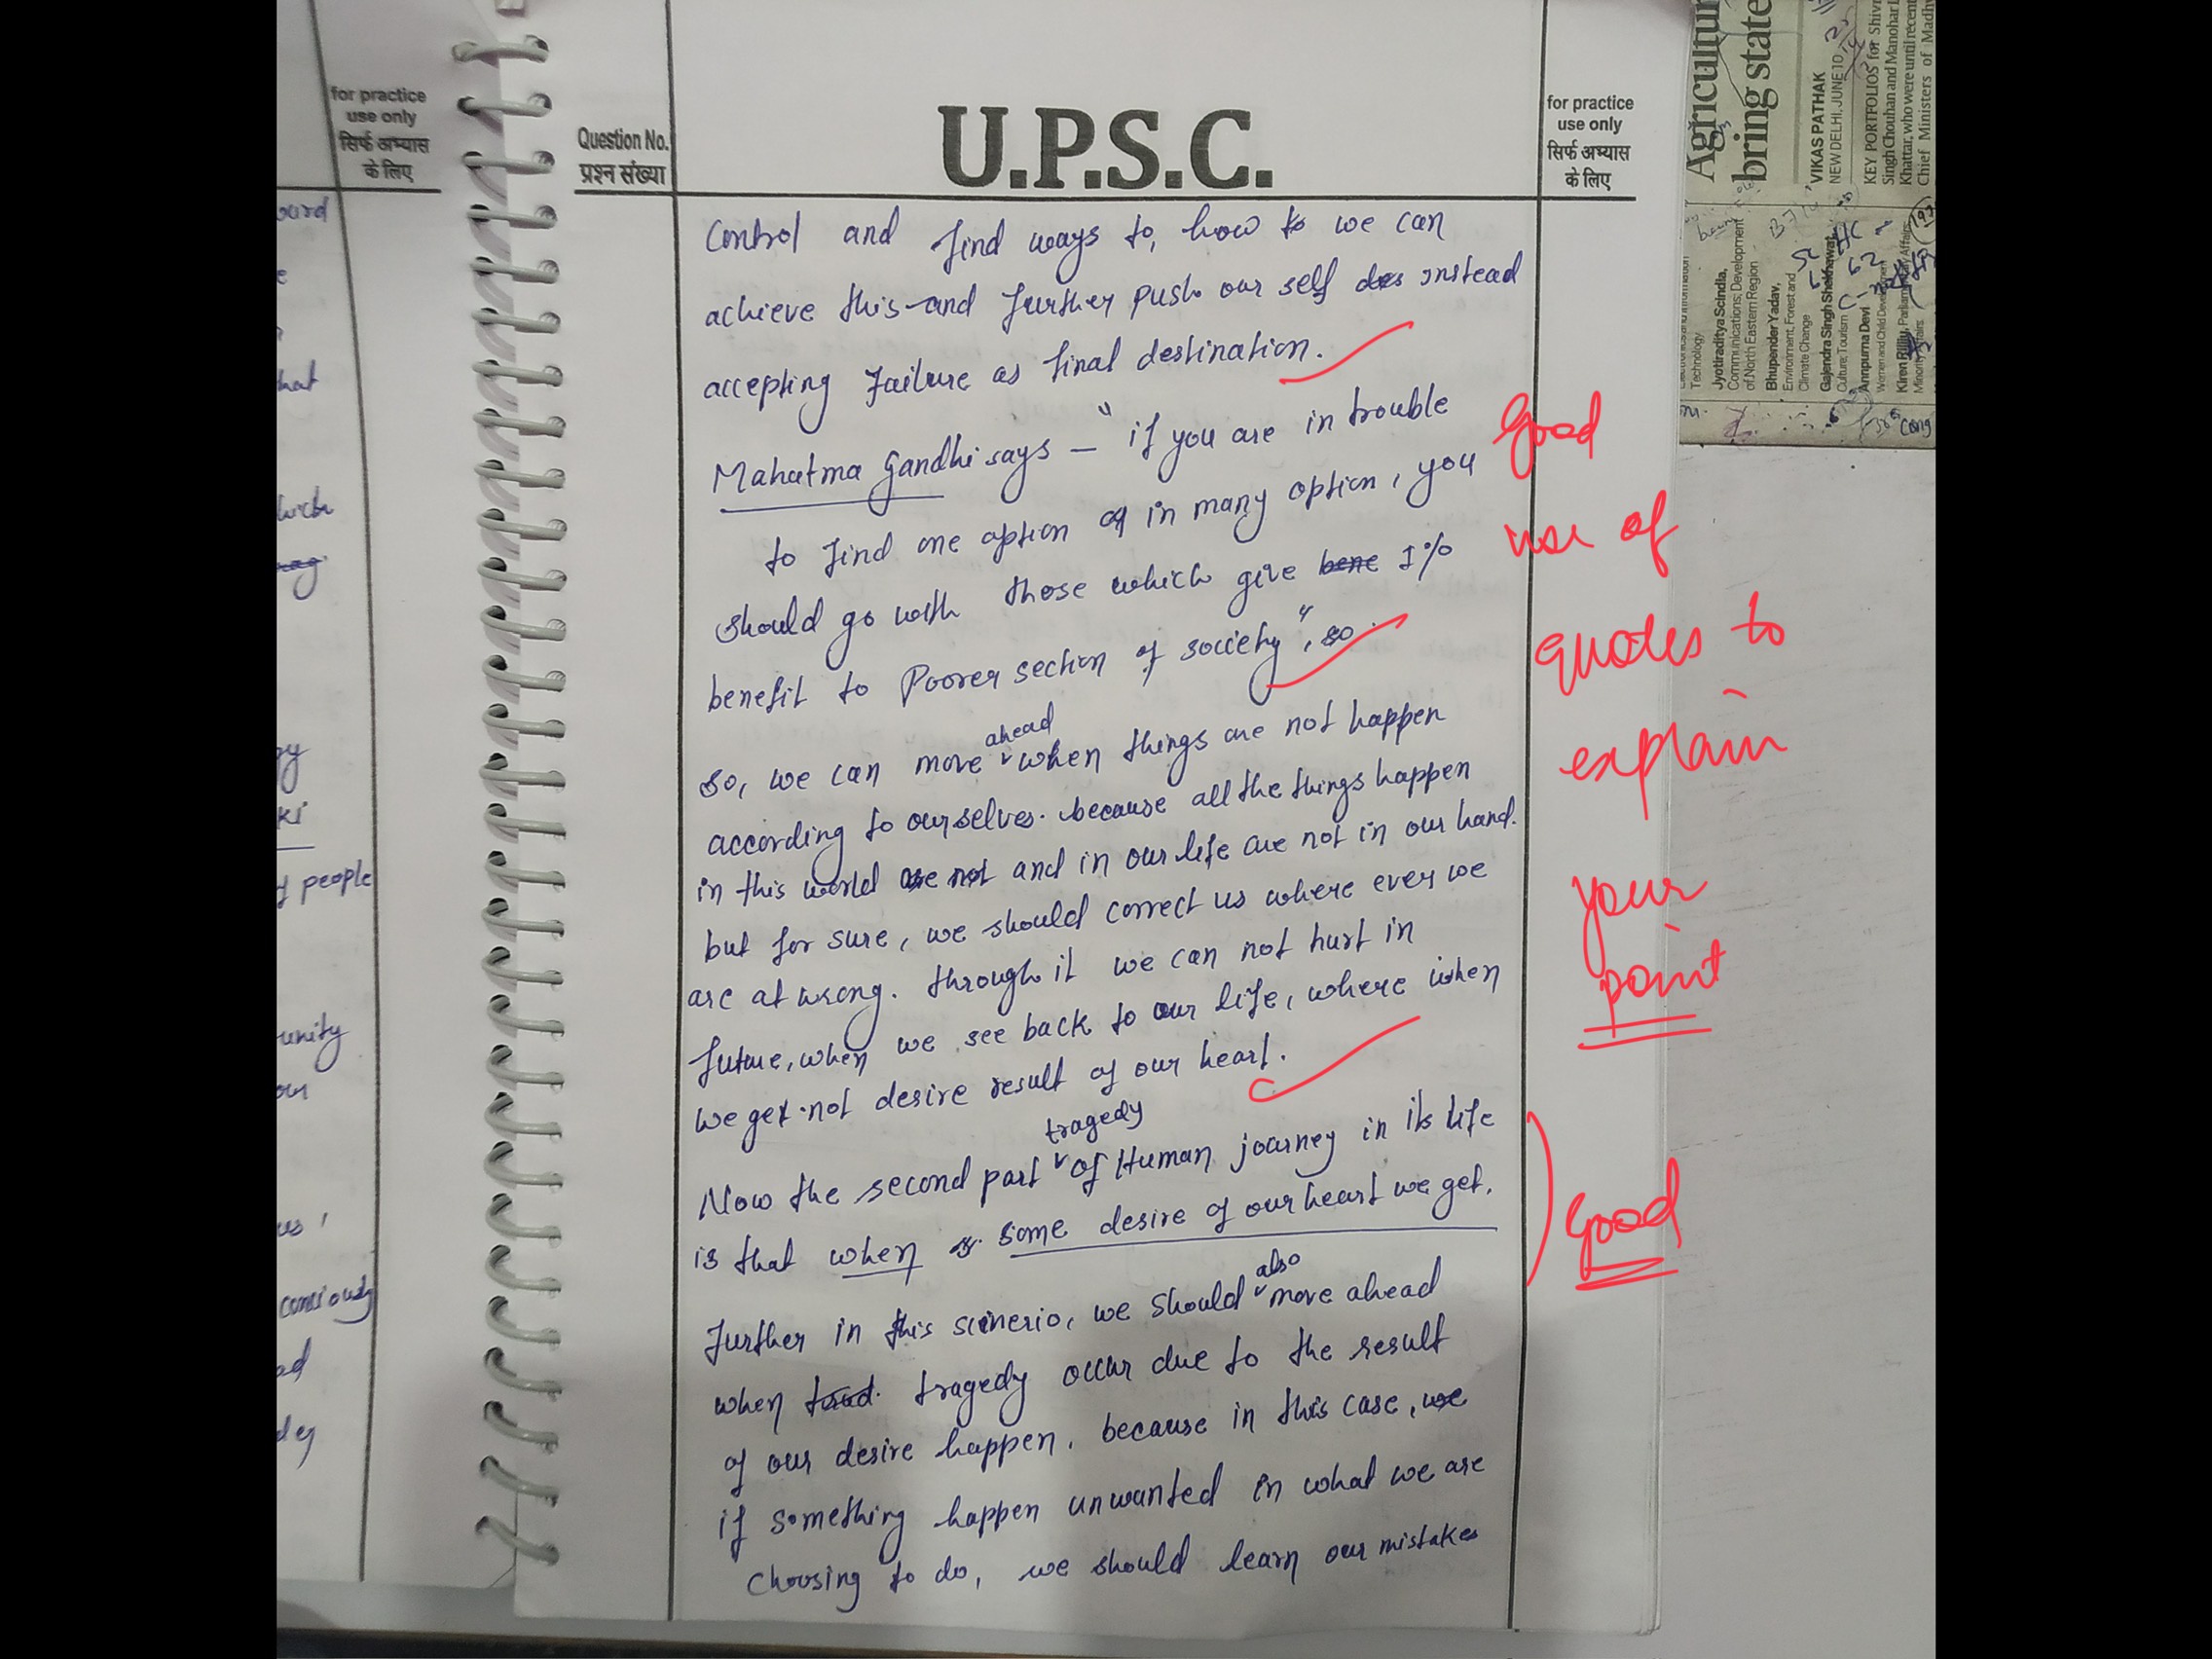 for practice
use only
सिर्फ अभ्यास
के लिए
hat
ki
people
unity
us,
ad
Question No.
प्रश्न संख्या
U.P.S.C.
for practice
use only
सिर्फ अभ्यास
के लिए
Control and find ways to, how to we can
achieve this and further push our self instead
accepting failure as final destination.
Mahatma Gandhi says – "if you are in trouble
to find one option of in many option, you
should go with those which give bene 1%
benefit to Poorer section of society", so
so, we can move ahead when things are not happen
according to ourselves. because all the things happen
in this world are not and in our life are not in our hand.
but for sure, we should correct us where ever we
are at wrong. through it we can not hurt in
future, when we see back to our life, where when
we get not desire result of our heart.
Now the second part tragedy of Human journey in its life
is that when some desire of our heart we get.
further in this scinerio, we should also move ahead
when tragedy occur due to the result
of our desire happen, because in this case, we
if something happen unwanted in what we are
choosing to do, we should learn our mistakes
Good
use of
quotes to
explain
your
point
Good
Agricultur
bring state
VIKAS PATHAK
NEW DELHI, JUNE 10
KEY PORTFOLIOS for Shivr
Singh Chouhan and Manohar L
Khattar, who were until recent
Chief Ministers of Madhy
Technology
Jyotiraditya Scindia,
Communications; Development
of North Eastern Region
Bhupender Yadav,
Environment, Forest and
Climate Change
Gajendra Singh Shekhawat,
Culture; Tourism
Annpurna Devi
Women and Child Development
Kiren Rijiju, Parliamentary Affairs,
Minority Affairs